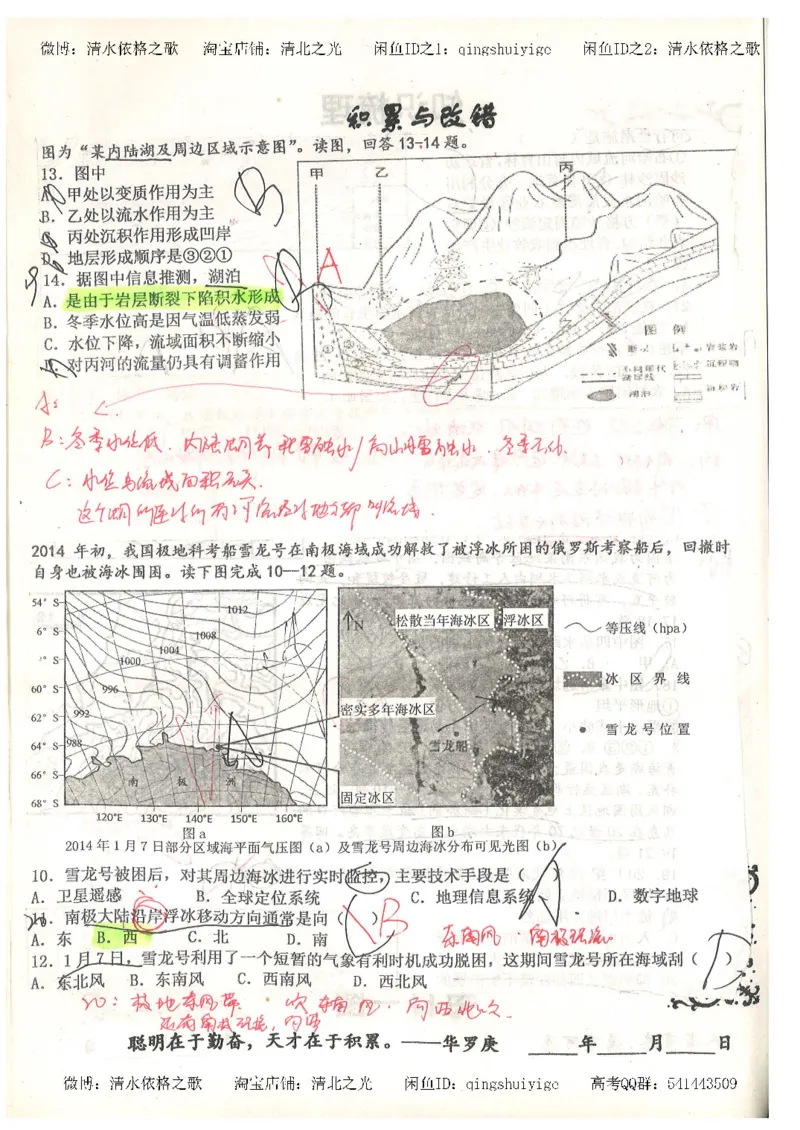 微博：清水依格之歌 淘宝店铺：清北之光 闲鱼ID之1：qingshuiyige 闲鱼ID之2：清水依格之歌
积累与改错
图为“某内陆湖及周边区域示意图”。读图，回答13-14题。
13．图中
A．甲处以变质作用为主
B．乙处以流水作用为主
C．丙处沉积作用形成凹岸
D．地层形成顺序是③②①
B
14．据图中信息推测，湖泊
A．是由于岩层断裂下陷积水形成
B．冬季水位高是因气温低蒸发弱
C．水位下降，流域面积不断缩小
D．对丙河的流量仍具有调蓄作用
D A
甲 乙 丙
图 例
断层 岩浆岩
不同年代地层线 沉积物
湖泊 沉积岩
A：
B：冬季水位低．内陆湖
C：水位与流域面积无关．
2014 年初，我国极地科考船雪龙号在南极海域成功解救了被浮冰所困的俄罗斯考察船后，回撤时
自身也被海冰围困。读下图完成 10—12 题。
54° S
6° S
° S
60° S
62° S
64° S
66° S
68° S
1012
1008
1004
1000
996
992
988
南 极 洲
120°E 130°E 140°E 150°E 160°E
图 a
N
松散当年海冰区 浮冰区
密实多年海冰区
雪龙船
固定冰区
图 b
等压线（hpa）
冰 区 界 线
雪 龙 号 位 置
2014 年 1 月 7 日部分区域海平面气压图（a）及雪龙号周边海冰分布可见光图（b）
10．雪龙号被困后，对其周边海冰进行实时监控，主要技术手段是（ A ）
A．卫星遥感 B．全球定位系统 C．地理信息系统 D．数字地球
11．南极大陆沿岸浮冰移动方向通常是向（ ）B
A．东 B．西 C．北 D．南
东南风．南极环流
12．1 月 7 日，雪龙号利用了一个短暂的气象有利时机成功脱困，这期间雪龙号所在海域刮（ D ）
A．东北风 B．东南风 C．西南风 D．西北风
极地东风带．吹东南风．向西北
聪明在于勤奋，天才在于积累。——华罗庚 ____年____月____日
微博：清水依格之歌 淘宝店铺：清北之光 闲鱼ID：qingshuiyige 高考QQ群：541443509